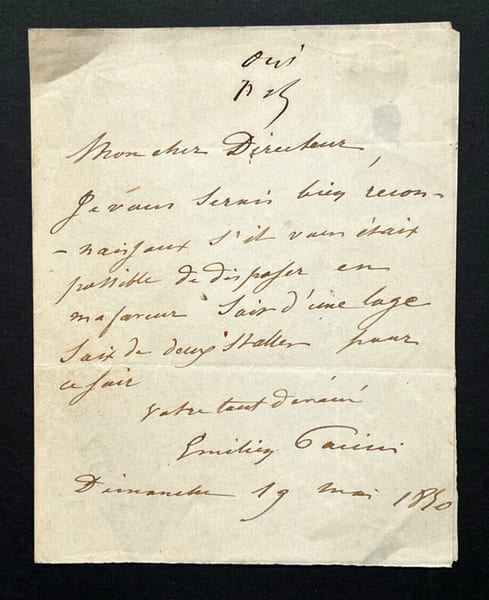 oui
Mon cher Directeur
Je vous serais bien recon-
-naissant s'il vous était
possible de disposer en
ma faveur soit d'une loge
soit de deux stalles pour
ce soir
Votre tout dévoué
Emilien Pacini
Dimanche 19 mai 1850